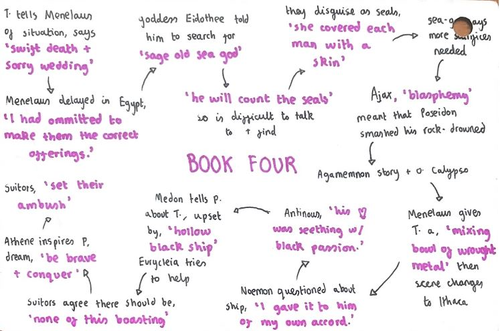 T. tells Menelaus
of situation, says
'swift death +
sorry wedding'
Menelaus delayed in Egypt,
'I had ommitted to
make them the correct
offerings.'
goddess Eidothee told
him to search for
'sage old sea god'
'he will count the seals'
so is difficult to talk
to + find
they disguise as seals,
'she covered each
man with a
skin'
more
needed
Ajax, 'blasphemy'
meant that Poseidon
smashed his rock - drowned
Agamemnon story + O Calypso
Menelaus gives
T. a, 'mixing
bowl of wrought
metal' then
scene changes
to Ithaca
Noemon questioned about
ship, 'I gave it to him
of my own accord.'
Antinous, 'his ♡
was seething w/
black passion.'
Medon tells P.
about T., upset
by, 'hollow
black ship'
Eurycleia tries
to help
Suitors agree there should be,
'none of this boasting'
Athene inspires P,
dream, 'be brave
+ conquer'
Suitors, 'set their
ambush'
BOOK FOUR